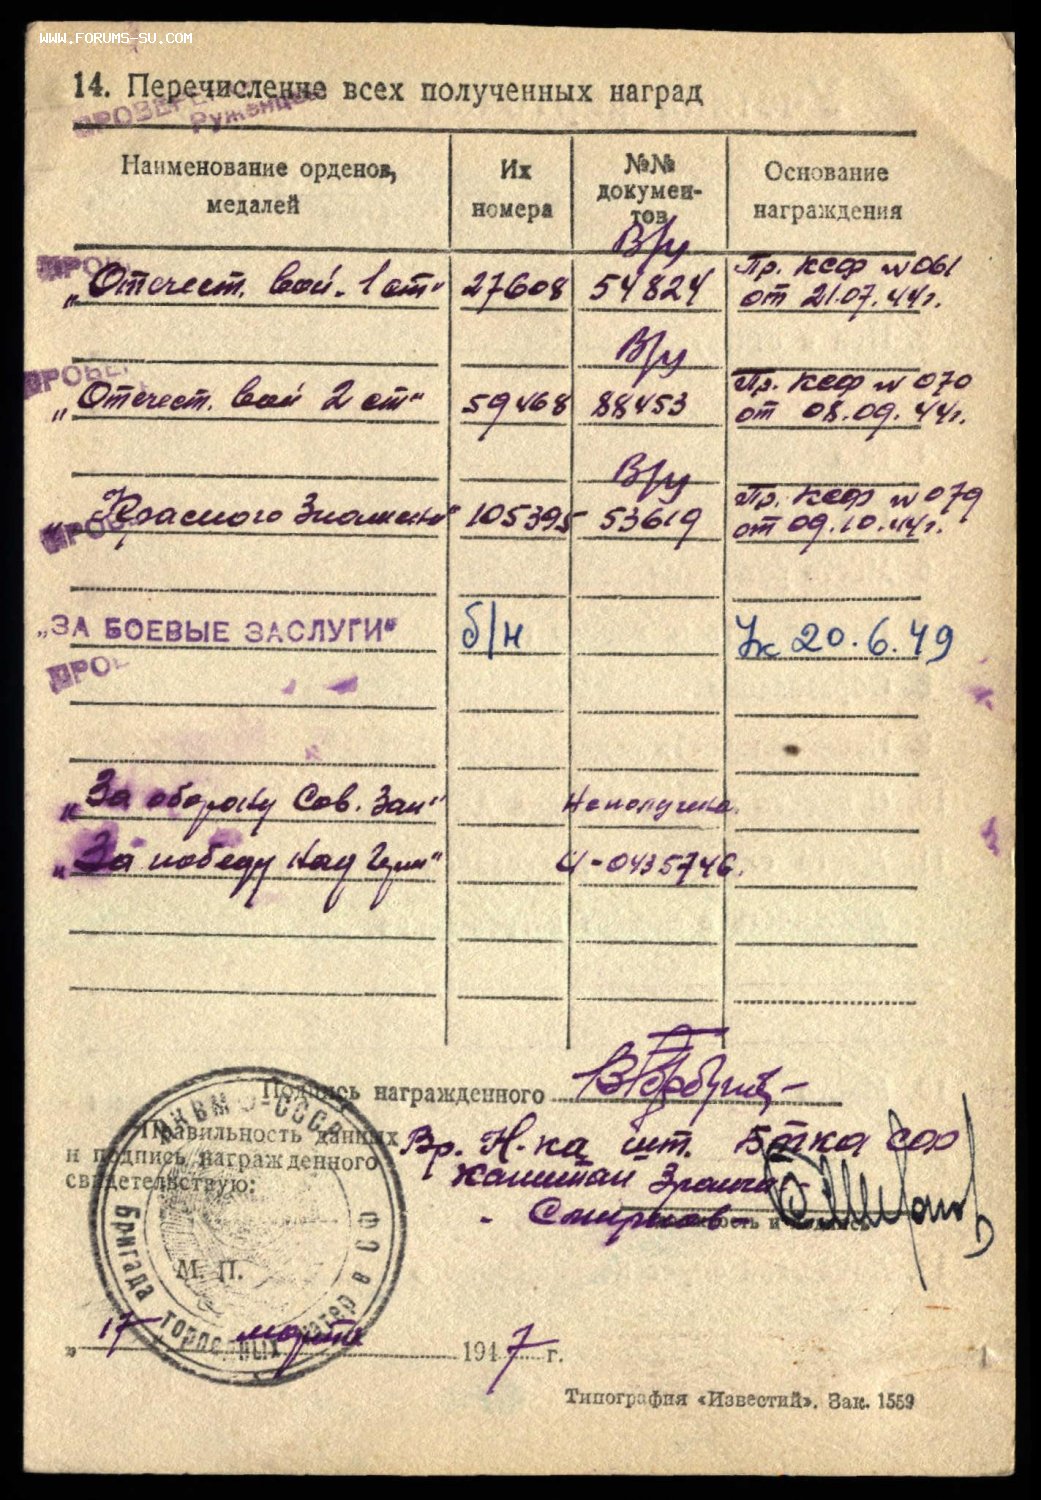 WWW.FORUMS-SU.COM
14. Перечисление всех полученных наград
ПРОВЕРЕНО
Наименование орденов, медалей
Их номера
№№ докумен-тов
Основание награждения
В/у
„Отечест. вой. 1 ст" 27608 54824 Пр. КСФ №061
от 21.07.44г.
В/у
„Отечест. вой 2 ст" 59468 88453 Пр. КСФ №070
от 08.09.44г.
В/у
„Красного Знамени" 105395 53619 Пр. КСФ №079
от 09.10.44г.
„ЗА БОЕВЫЕ ЗАСЛУГИ" б/н Ук 20.6.49
„За оборону Сов. Зап" Неполучена.
„За победу над Герм" И-0435746.
Подпись награжденного
Правильность данных
и подпись награжденного
свидетельствую:
Вр. Н-ка шт. Б-тка сф
капитан 3 ранга
- Смирнов -
должность и подпись
М. П.
Бригада торпедных катеров
„17 марта 1947 г.
Типография «Известий». Зак. 1559